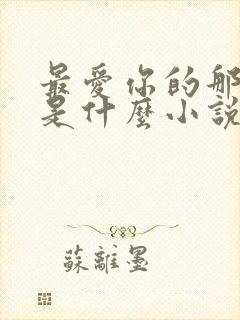 最愛你的那
是什麼小說
蘇離墨